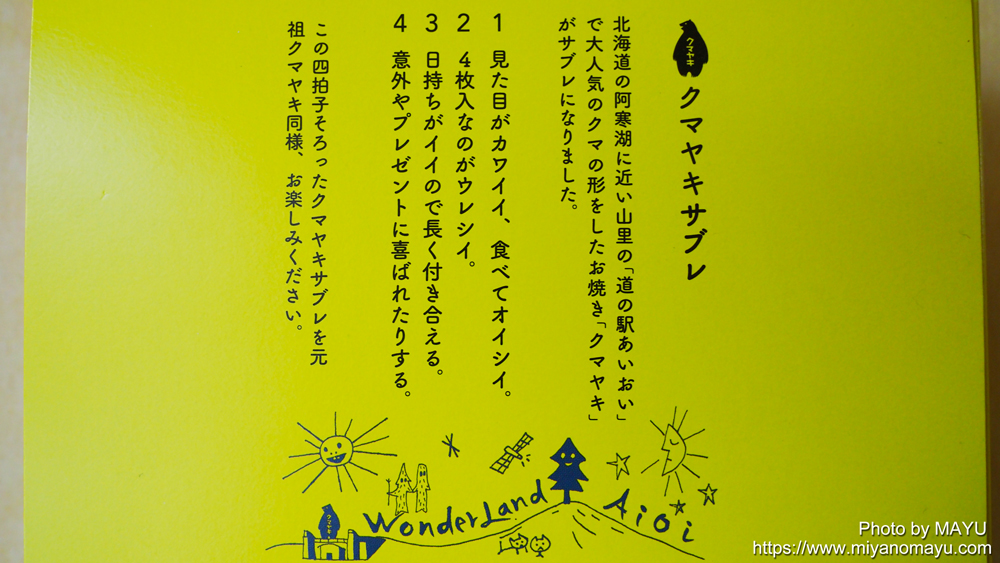 クマヤキ
クマヤキサブレ
北海道の阿寒湖に近い山里の「道の駅あいおい」
で大人気のクマの形をしたお焼き「クマヤキ」
がサブレになりました。
1 見た目がカワイイ、食べてオイシイ。
2 4枚入なのがウレシイ。
3 日持ちがイイので長く付き合える。
4 意外やプレゼントに喜ばれたりする。
この四拍子そろったクマヤキサブレを元
祖クマヤキ同様、お楽しみください。
WonderLand Aioi
クマヤキ
Photo by MAYU
https://www.miyanomayu.com